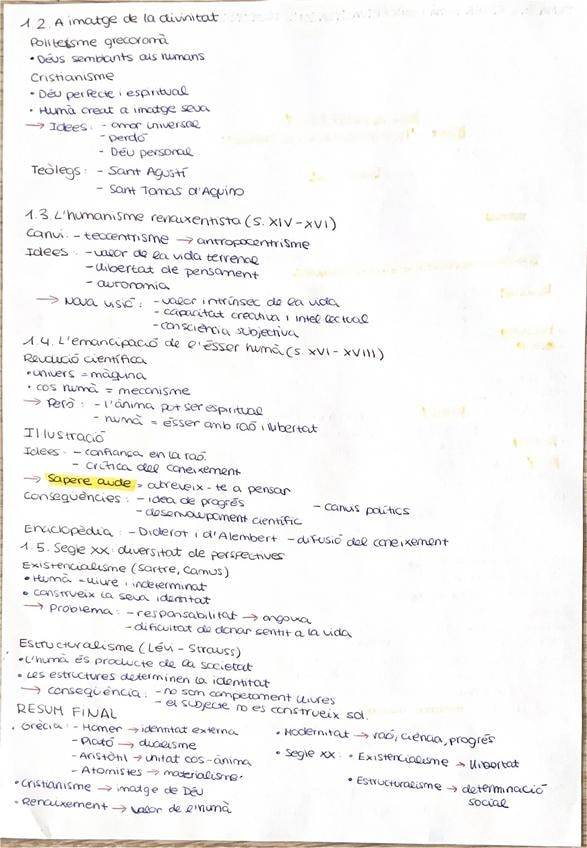 1.2. A imatge de la divinitat
Politeisme grecoromà
• Déus semblants als humans
Cristianisme
• Déu perfecte i espiritual
• Humà creat a imatge seva
→ Idees: - amor universal
- perdó
- Déu personal
Teòlegs: - Sant Agustí
- Sant Tomas d'Aquino
1.3. L'humanisme renaixentista (s. XIV-XVI)
Canvi: - teocentrisme → antropocentrisme
Idees: - valor de la vida terrenal
- llibertat de pensament
- autonomia
→ Nova visió: - valor intrínsec de la vida
- capacitat creativa i intel·lectual
- consciència subjectiva
1.4. L'emancipació de l'ésser humà (s. XVI-XVIII)
Revolució científica
• univers = màquina
• cos humà = mecanisme
→ Però: - l'ànima pot ser espiritual
- humà = ésser amb raó i llibertat
Il·lustració
Idees: - confiança en la raó
- crítica del coneixement
→ Sapere aude = atreveix-te a pensar
Conseqüències: - idea de progrés - canvis polítics
- desenvolupament científic
Enciclopèdia: - Diderot i d'Alembert - difusió del coneixement
1.5. Segle XX: diversitat de perspectives
Existencialisme (Sartre, Camus)
• Humà = lliure i indeterminat
• construeix la seva identitat
→ Problema: - responsabilitat → angoixa
- dificultat de donar sentit a la vida
Estructuralisme (Lévi-Strauss)
• L'humà és producte de la societat
• Les estructures determinen la identitat
→ conseqüència: - no som completament lliures
- el subjecte no es construeix sol.
RESUM FINAL
• Grècia: - Homer → identitat externa
- Plató → dualisme
- Aristòtil → unitat cos-ànima
- Atomistes → materialisme
• Cristianisme → imatge de Déu
• Renaixement → valor de l'humà
• Modernitat → raó, ciència, progrés
• Segle XX: • Existencialisme → llibertat
• Estructuralisme → determinació
social